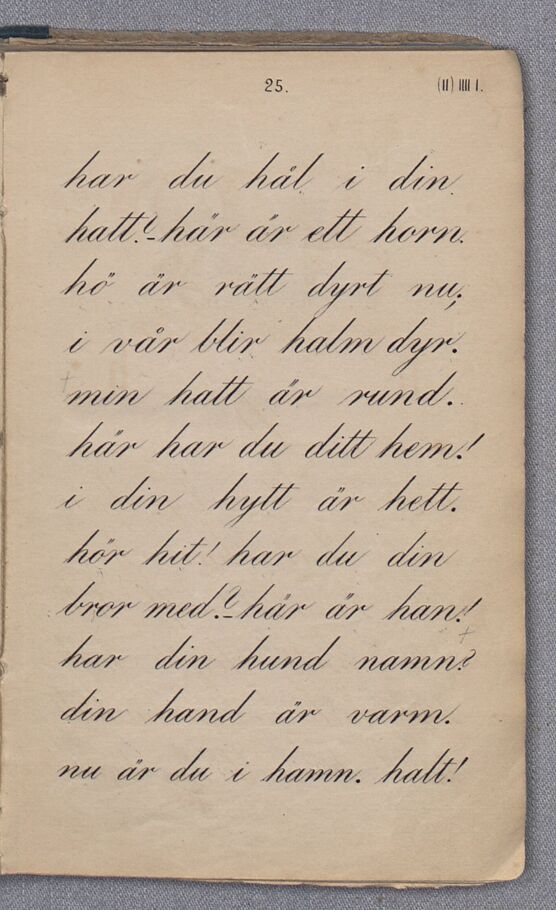 25. (II) IIII I.
har du hål i din
hatt?-här är ett horn.
hö är rätt dyrt nu;
i vår blir halm dyr.
min hatt är rund.
här har du ditt hem!
i din hytt är hett.
hör hit! har du din
bror med?-här är han!
har din hund namn?
din hand är varm.
nu är du i hamn. halt!